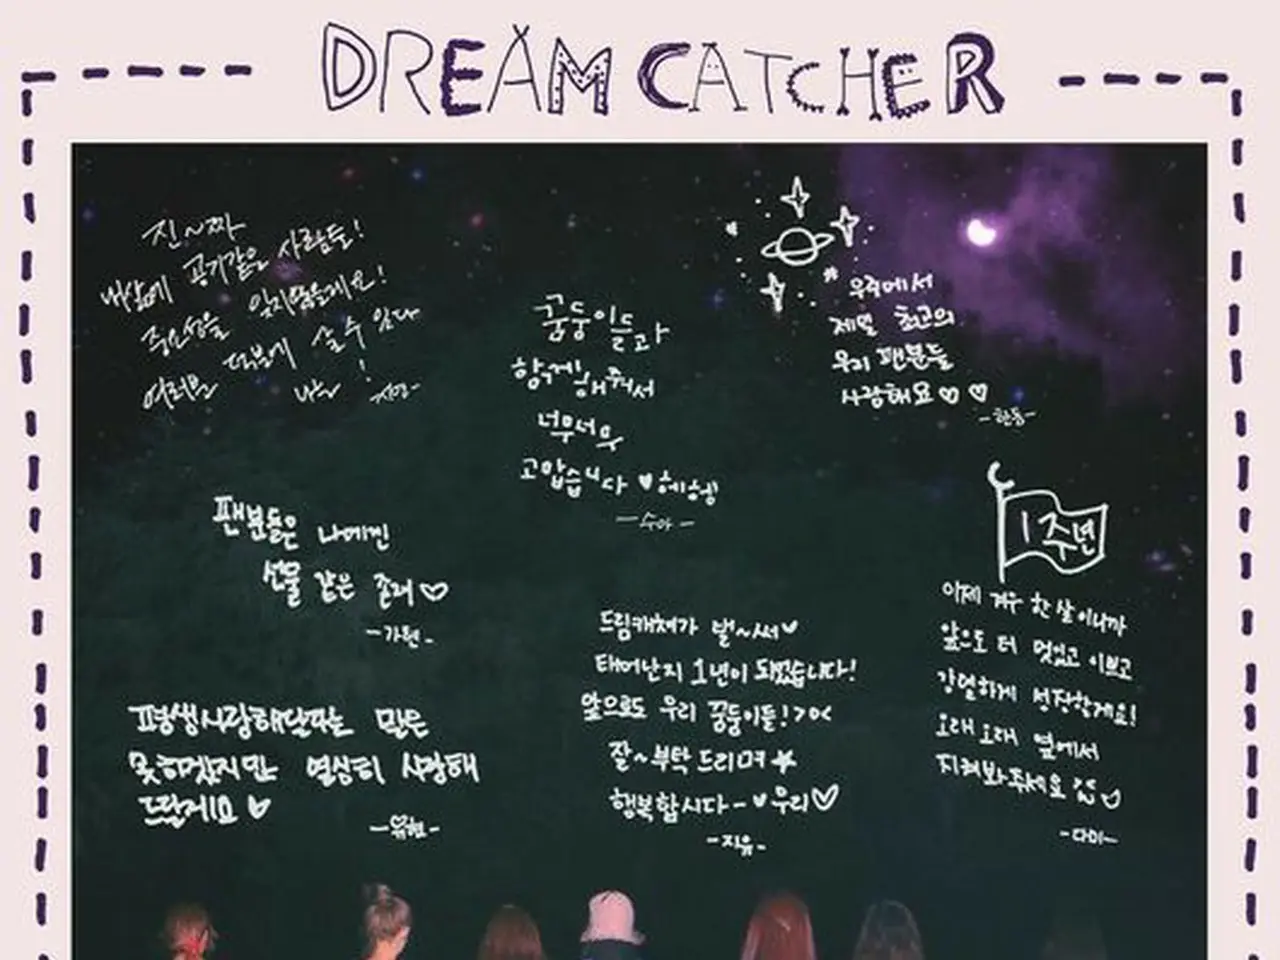 DREAM CATCHER
진~짜
내 삶에 공기같은 사람들!
중요성을 잊지않을게요!
여러분 덕분에 살 수 있다
나는!
-시연-
꿈둥이들과
함께해줘서
너무너무
고맙습니다 ♥헤헹
-수아-
우주에서
제일 최고의
우리 팬분들
사랑해요♡♡
-한동-
팬분들은 나에겐
선물 같은 존재♡
-가현-
1주년
이제 겨우 한 살이니까
앞으로 더 멋있고 이쁘고
강렬하게 성장할게요!
오래오래 옆에서
지켜봐주세요
-다미-
드림캐쳐가 벌~써♥
태어난지 1년이 되었습니다!
앞으로도 우리 꿈둥이들!>o<
잘~부탁드리며
행복합시다-♥우리♡
-지유-
평생사랑해달라는 말은
못하겠지만 열심히 사랑해
드릴게요♡
-유현-